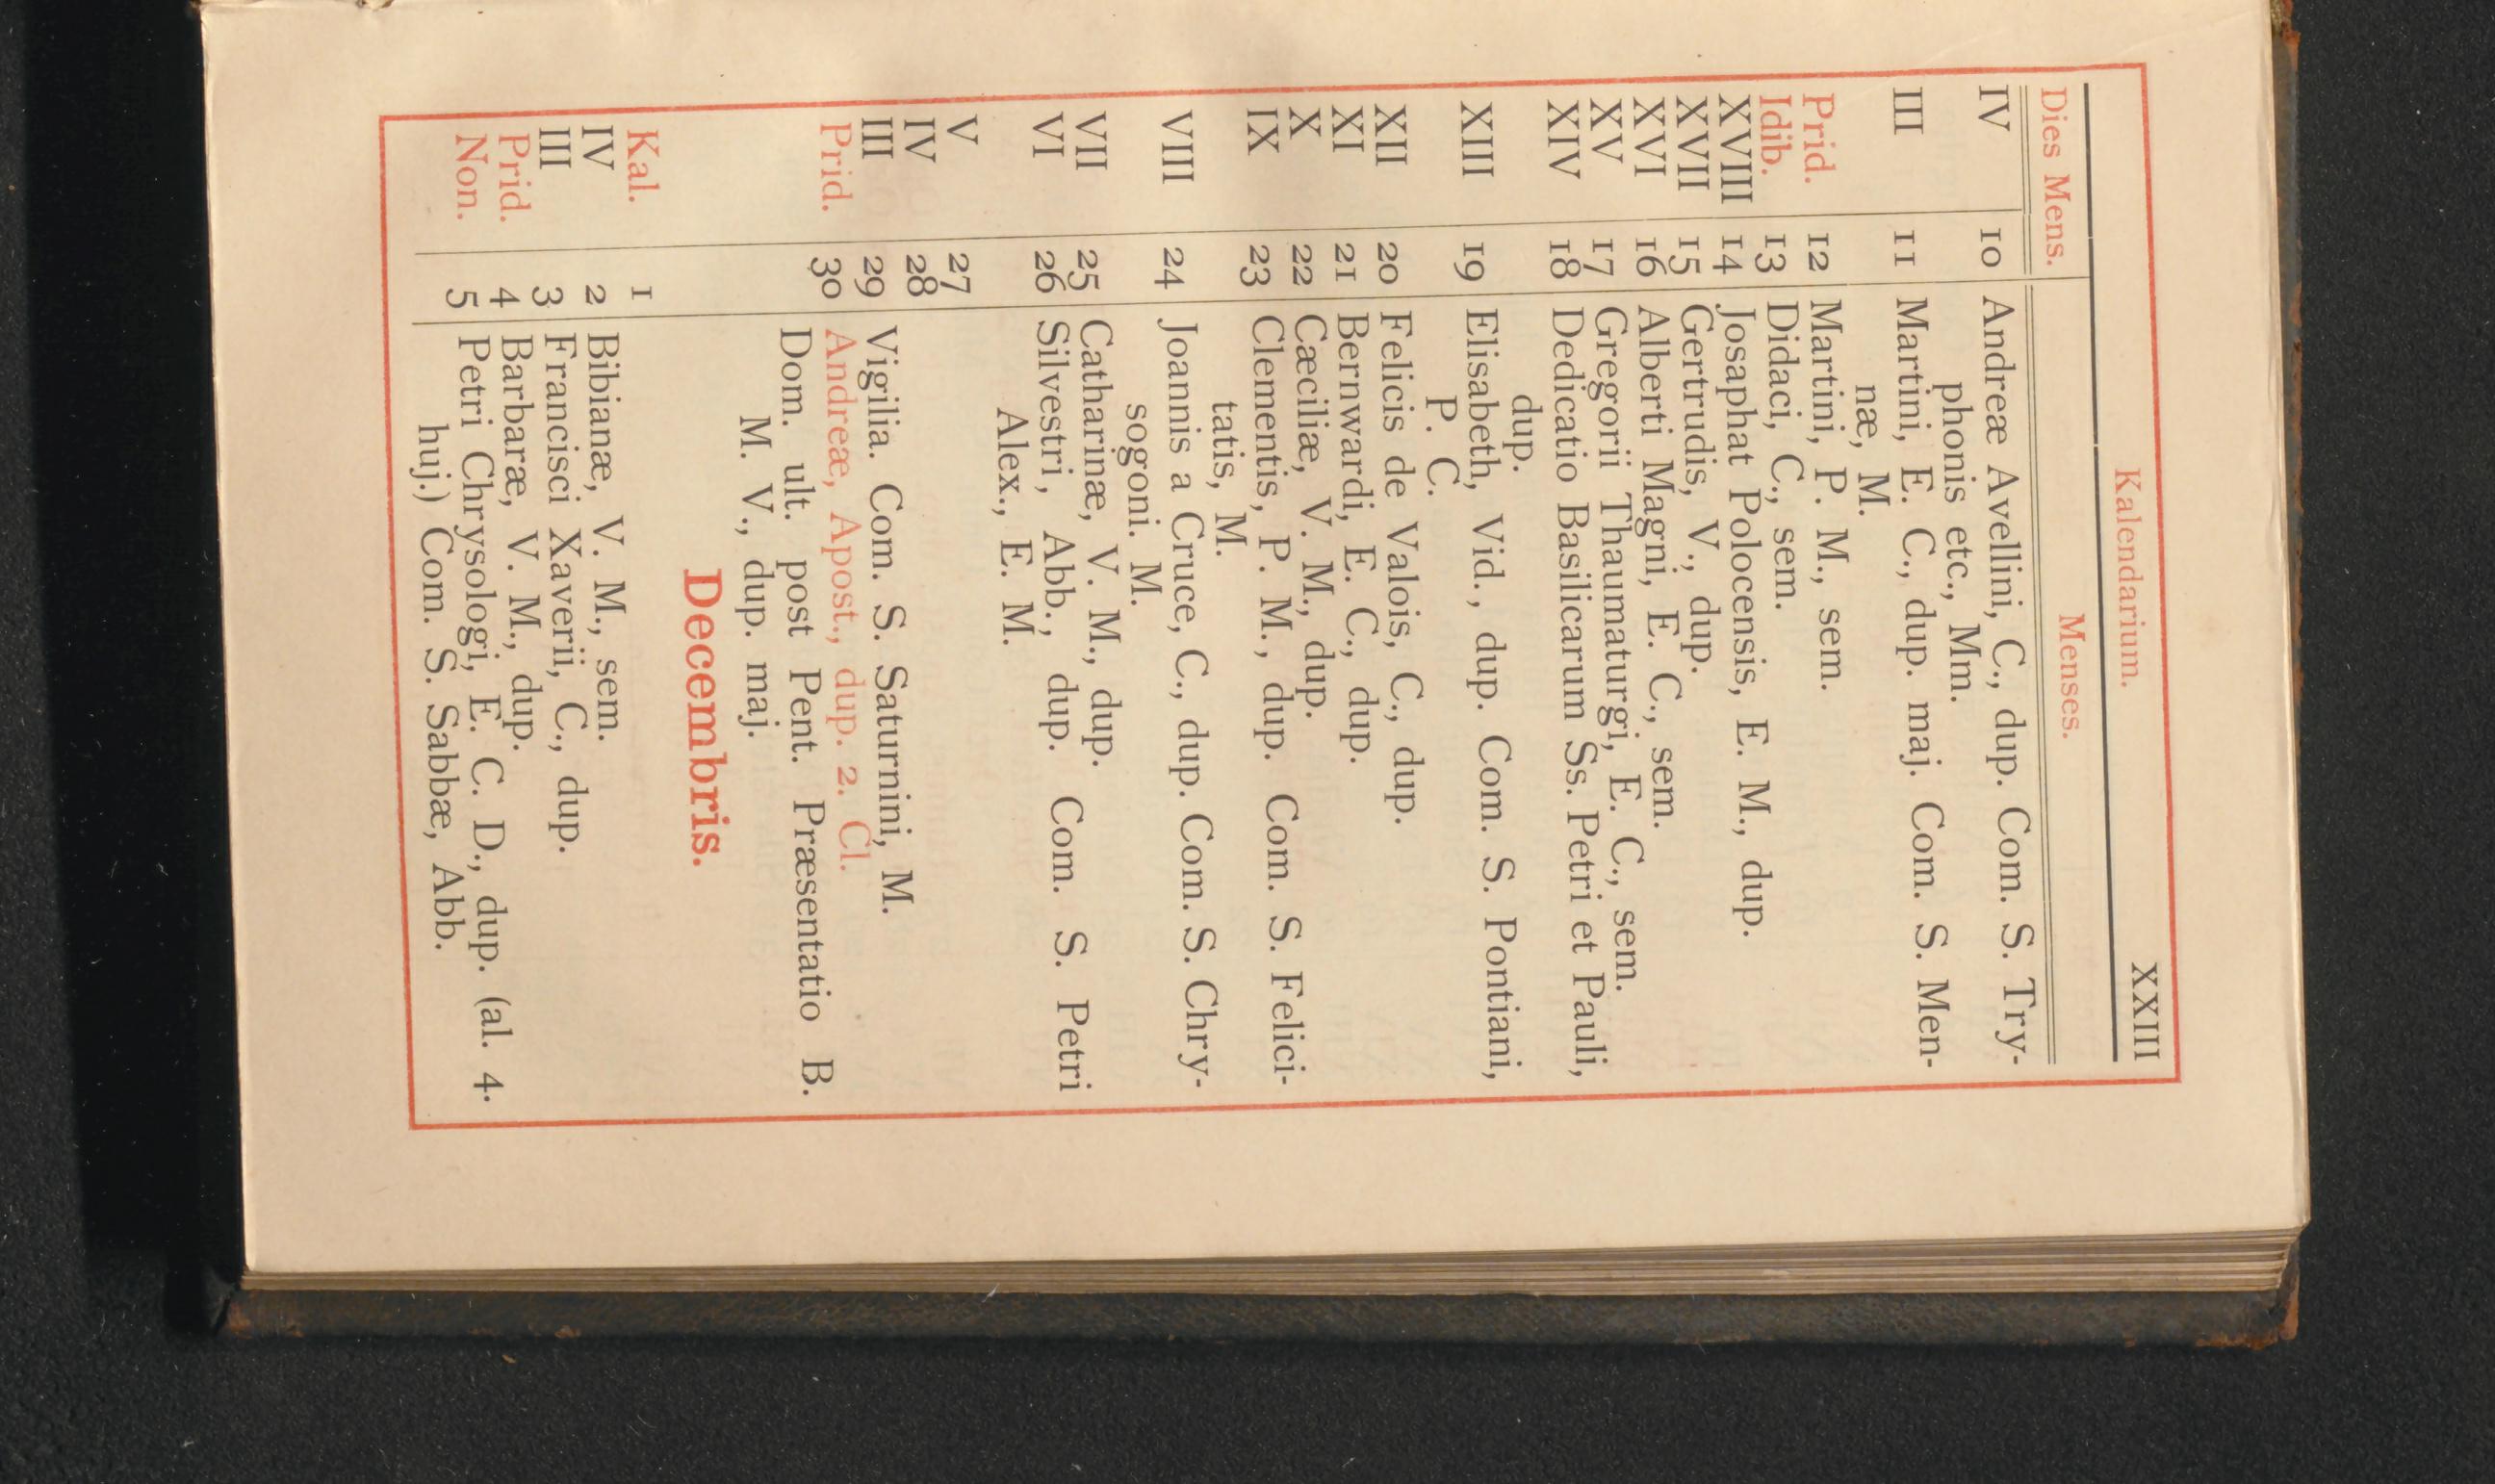 Kalendarium. XXIII
Dies Mens. Menses.
IV 10 Andreæ Avellini, C., dup. Com. S. Try-
phonis etc., Mm.
III 11 Martini, E. C., dup. maj. Com. S. Men-
næ, M.
Prid. 12 Martini, P. M., sem.
Idib. 13 Didaci, C., sem.
XVIII 14 Josaphat Polocensis, E. M., dup.
XVII 15 Gertrudis, V., dup.
XVI 16 Alberti Magni, E. C., sem.
XV 17 Gregorii Thaumaturgi, E. C., sem.
XIV 18 Dedicatio Basilicarum Ss. Petri et Pauli,
dup.
XIII 19 Elisabeth, Vid., dup. Com. S. Pontiani,
P. C.
XII 20 Felicis de Valois, C., dup.
XI 21 Bernwardi, E. C., dup.
X 22 Cæciliæ, V. M., dup.
IX 23 Clementis, P. M., dup. Com. S. Felici-
tatis, M.
VIII 24 Joannis a Cruce, C., dup. Com. S. Chry-
sogoni. M.
VII 25 Catharinæ, V. M., dup.
VI 26 Silvestri, Abb., dup. Com. S. Petri
Alex., E. M.
V 27
IV 28
III 29 Vigilia. Com. S. Saturnini, M.
Prid. 30 Andreæ, Apost., dup. 2. Cl.
Dom. ult. post Pent. Præsentatio B.
M. V., dup. maj.
Decembris.
Kal. 1
IV 2 Bibianæ, V. M., sem.
III 3 Francisci Xaverii, C., dup.
Prid. 4 Barbaræ, V. M., dup.
Non. 5 Petri Chrysologi, E. C. D., dup. (al. 4.
huj.) Com. S. Sabbæ, Abb.